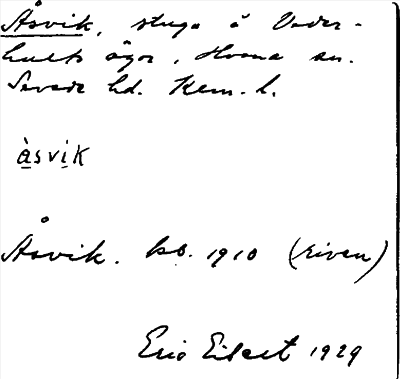 Åsvik, stuga å Veder-
hults ägor, Horna sn.
Sevede hd. Kalm. l.
àsvik
Åsvik. kb. 1910 (riven)
Eric Eilert 1929